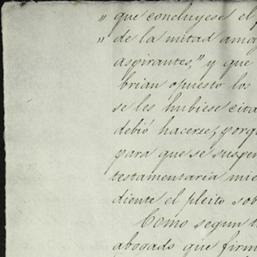 " que concluyese el
" de la mitad
aspirantes," y que
brian opuesto los
se les hubiese cita
debió hacerse, porq
para que se suspen
testamentaria mie
diente el pleito sob
Como segun
abogado que firm